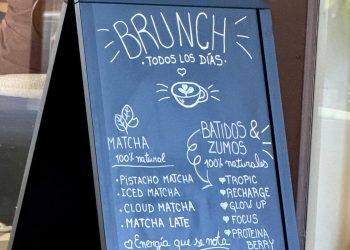 BRUNCH
TODOS LOS DÍAS
MATCHA
100% natural
PISTACHO MATCHA
ICED MATCHA
CLOUD MATCHA
MATCHA LATE
Energía que se nota
BATIDOS &
ZUMOS
100% naturales
TROPIC
RECHARGE
GLOW UP
FOCUS
PROTEINA
BERRY